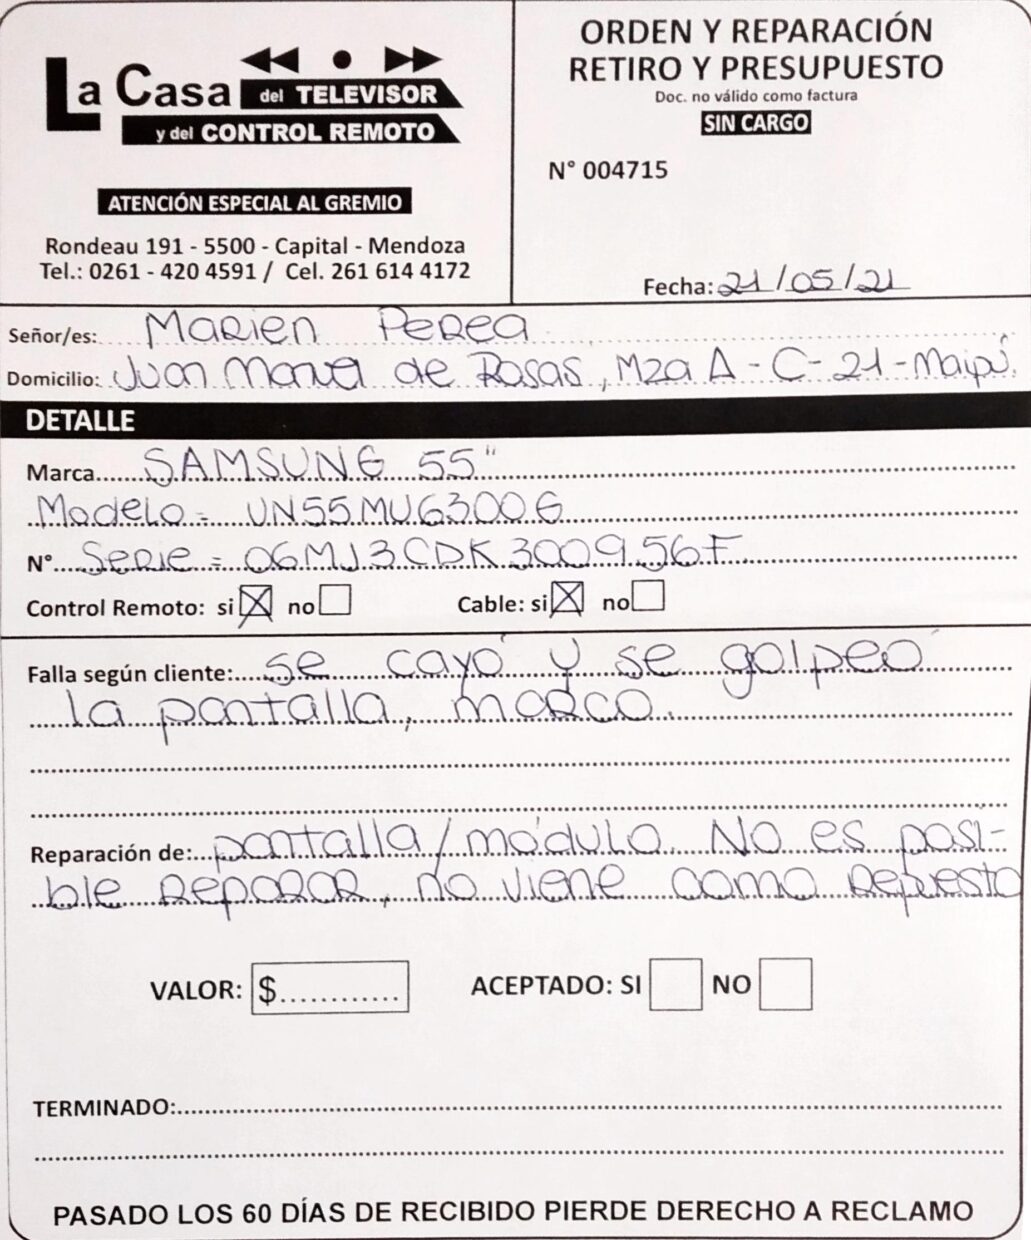 La Casa del TELEVISOR
y del CONTROL REMOTO
ATENCIÓN ESPECIAL AL GREMIO
Rondeau 191 - 5500 - Capital - Mendoza
Tel.: 0261 - 420 4591 / Cel. 261 614 4172
ORDEN Y REPARACIÓN
RETIRO Y PRESUPUESTO
Doc. no válido como factura
SIN CARGO
N° 004715
Fecha: 21/05/21
Señor/es: Marien Perea
Domicilio: Juan Manuel de Rosas, Mza A - C - 21 - Maipú.
DETALLE
Marca SAMSUNG 55"
Modelo = UN55MU6300G
N° Serie = 06MJ3CDK300956F
Control Remoto: si no Cable: si no
Falla según cliente: se cayó y se golpeó
la pantalla, marco.
Reparación de: pantalla/módulo. No es posi-
ble reparar, no viene como repuesto
VALOR: $............ ACEPTADO: SI NO
TERMINADO:
PASADO LOS 60 DÍAS DE RECIBIDO PIERDE DERECHO A RECLAMO